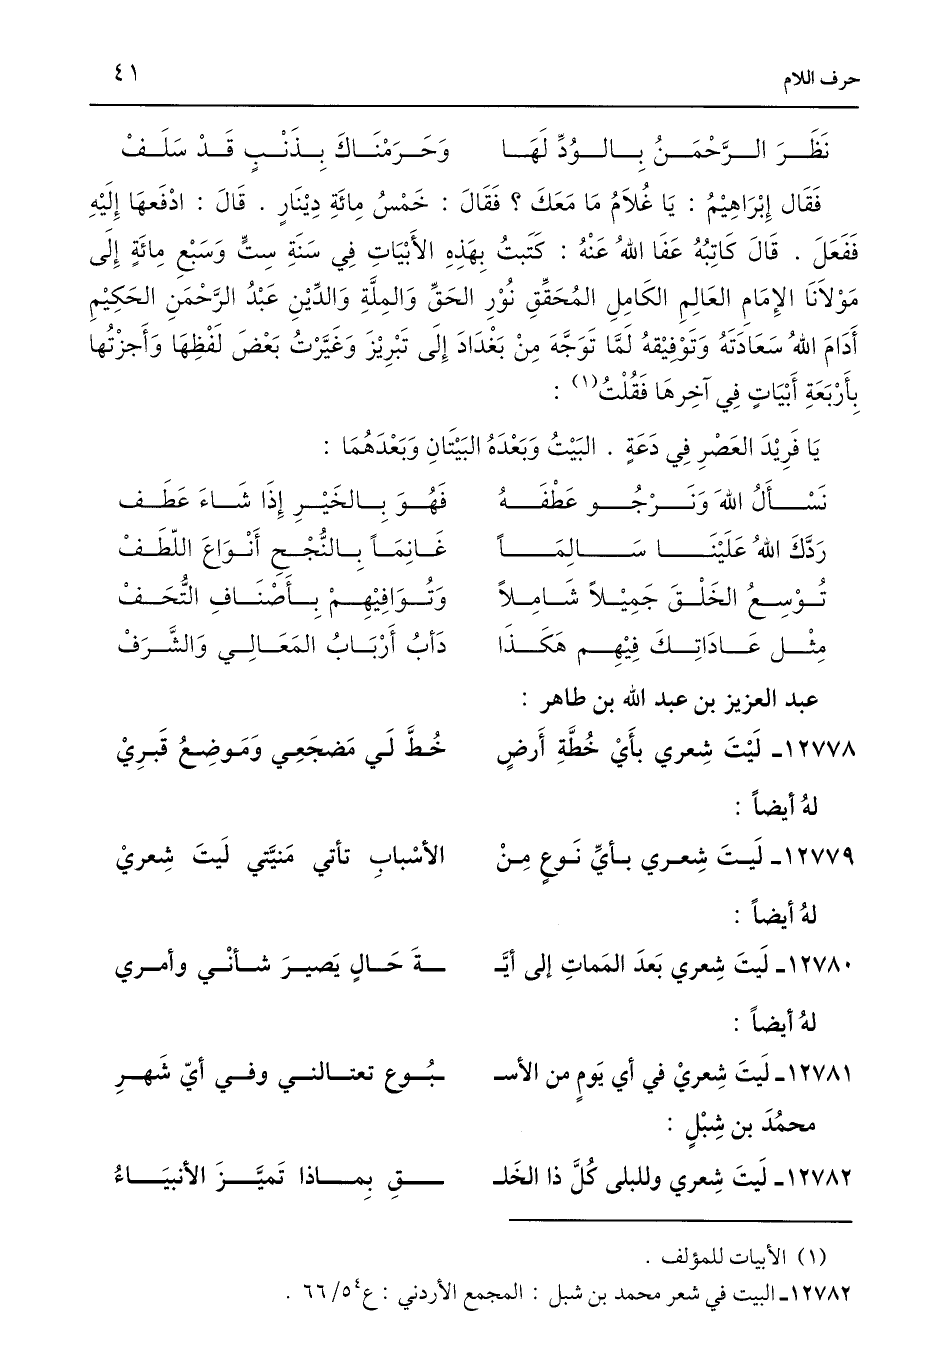 حرف اللام ٤١
نَظَرَ الرَّحْمَنُ بِالوُدِّ لَهَا وَحَرَمْنَاكَ بِذَنْبٍ قَدْ سَلَفْ
فَقَال إِبْرَاهِيْمُ : يَا غُلَامُ مَا مَعَكَ ؟ فَقَالَ : خَمْسُ مِائَةِ دِيْنَارٍ . قَالَ : ادْفَعهَا إِلَيْهِ
فَفَعَلَ . قَالَ كَاتِبُهُ عَفَا اللهُ عَنْهُ : كَتَبتُ بِهَذِهِ الأَبْيَاتِ فِي سَنَةِ سِتٍّ وَسَبْعِ مِائَةٍ إِلَى
مَوْلَانَا الإِمَامِ العَالِمِ الكَامِلِ المُحَقِّقِ نُوْرِ الحَقِّ وَالمِلَّةِ وَالدِّيْنِ عَبْدُ الرَّحْمَنِ الحَكِيْمِ
أَدَامَ اللهُ سَعَادَتَهُ وَتَوْفِيْقهُ لَمَّا تَوَجَّهَ مِنْ بَغْدَادَ إِلَى تَبْرِيْزَ وَغَيَّرْتُ بَعْضَ لَفْظِهَا وَأَجزْتُها
بِأَرْبَعَةِ أَبْيَاتٍ فِي آخِرِهَا فَقُلْتُ(١) :
يَا فَرِيْدَ العَصْرِ فِي دَعَةٍ . البَيْتُ وَبَعْدَهُ البَيْتَانِ وَبَعْدَهُمَا :
نَسْأَلُ اللهَ وَنَرْجُو عَطْفَهُ فَهُوَ بِالخَيْرِ إِذَا شَاءَ عَطَف
رَدَّكَ اللهُ عَلَيْنَا سَالِمَاً غَانِمَاً بِالنُّجْحِ أَنْوَاعَ اللّطَفْ
تُوْسِعُ الخَلْقَ جَمِيْلاً شَامِلاً وَتُوَافِيْهِمْ بِأَصْنَافِ التُّحَفْ
مِثْل عَادَاتِكَ فِيْهِم هَكَذَا دَأبُ أَرْبَابُ المَعَالِي وَالشَّرَفْ
عبد العزيز بن عبد الله بن طاهر :
١٢٧٧٨ـ لَيْتَ شِعري بِأَيْ خُطَّةِ أَرضٍ خُطَّ لَي مَضجَعِي وَمَوضِعُ قَبرِيْ
لهُ أيضاً :
١٢٧٧٩ـ لَيتَ شِعري بأيِّ نَوعٍ مِنْ الأسْبابِ تأتي مَنيَّتي لَيتَ شِعريْ
لهُ أيضاً :
١٢٧٨٠ـ لَيتَ شِعري بَعدَ المَماتِ إلى أيَّـ ـةَ حَالٍ يَصيرَ شأنْي وأمري
لهُ أيضاً :
١٢٧٨١ـ لَيتَ شِعريْ في أي يَومٍ من الأسـ ـبُوع تغتالني وفي أيّ شَهرِ
محمُدَ بن شِبْلٍ :
١٢٧٨٢ـ لَيتَ شِعري وللبلى كُلَّ ذا الخَلـ ـقِ بِماذا تَميَّزَ الأنبيَاءُ
(١) الأبيات للمؤلف .
١٢٧٨٢ـ البيت في شعر محمد بن شبل : المجمع الأردني : ع٥٤/ ٦٦ .